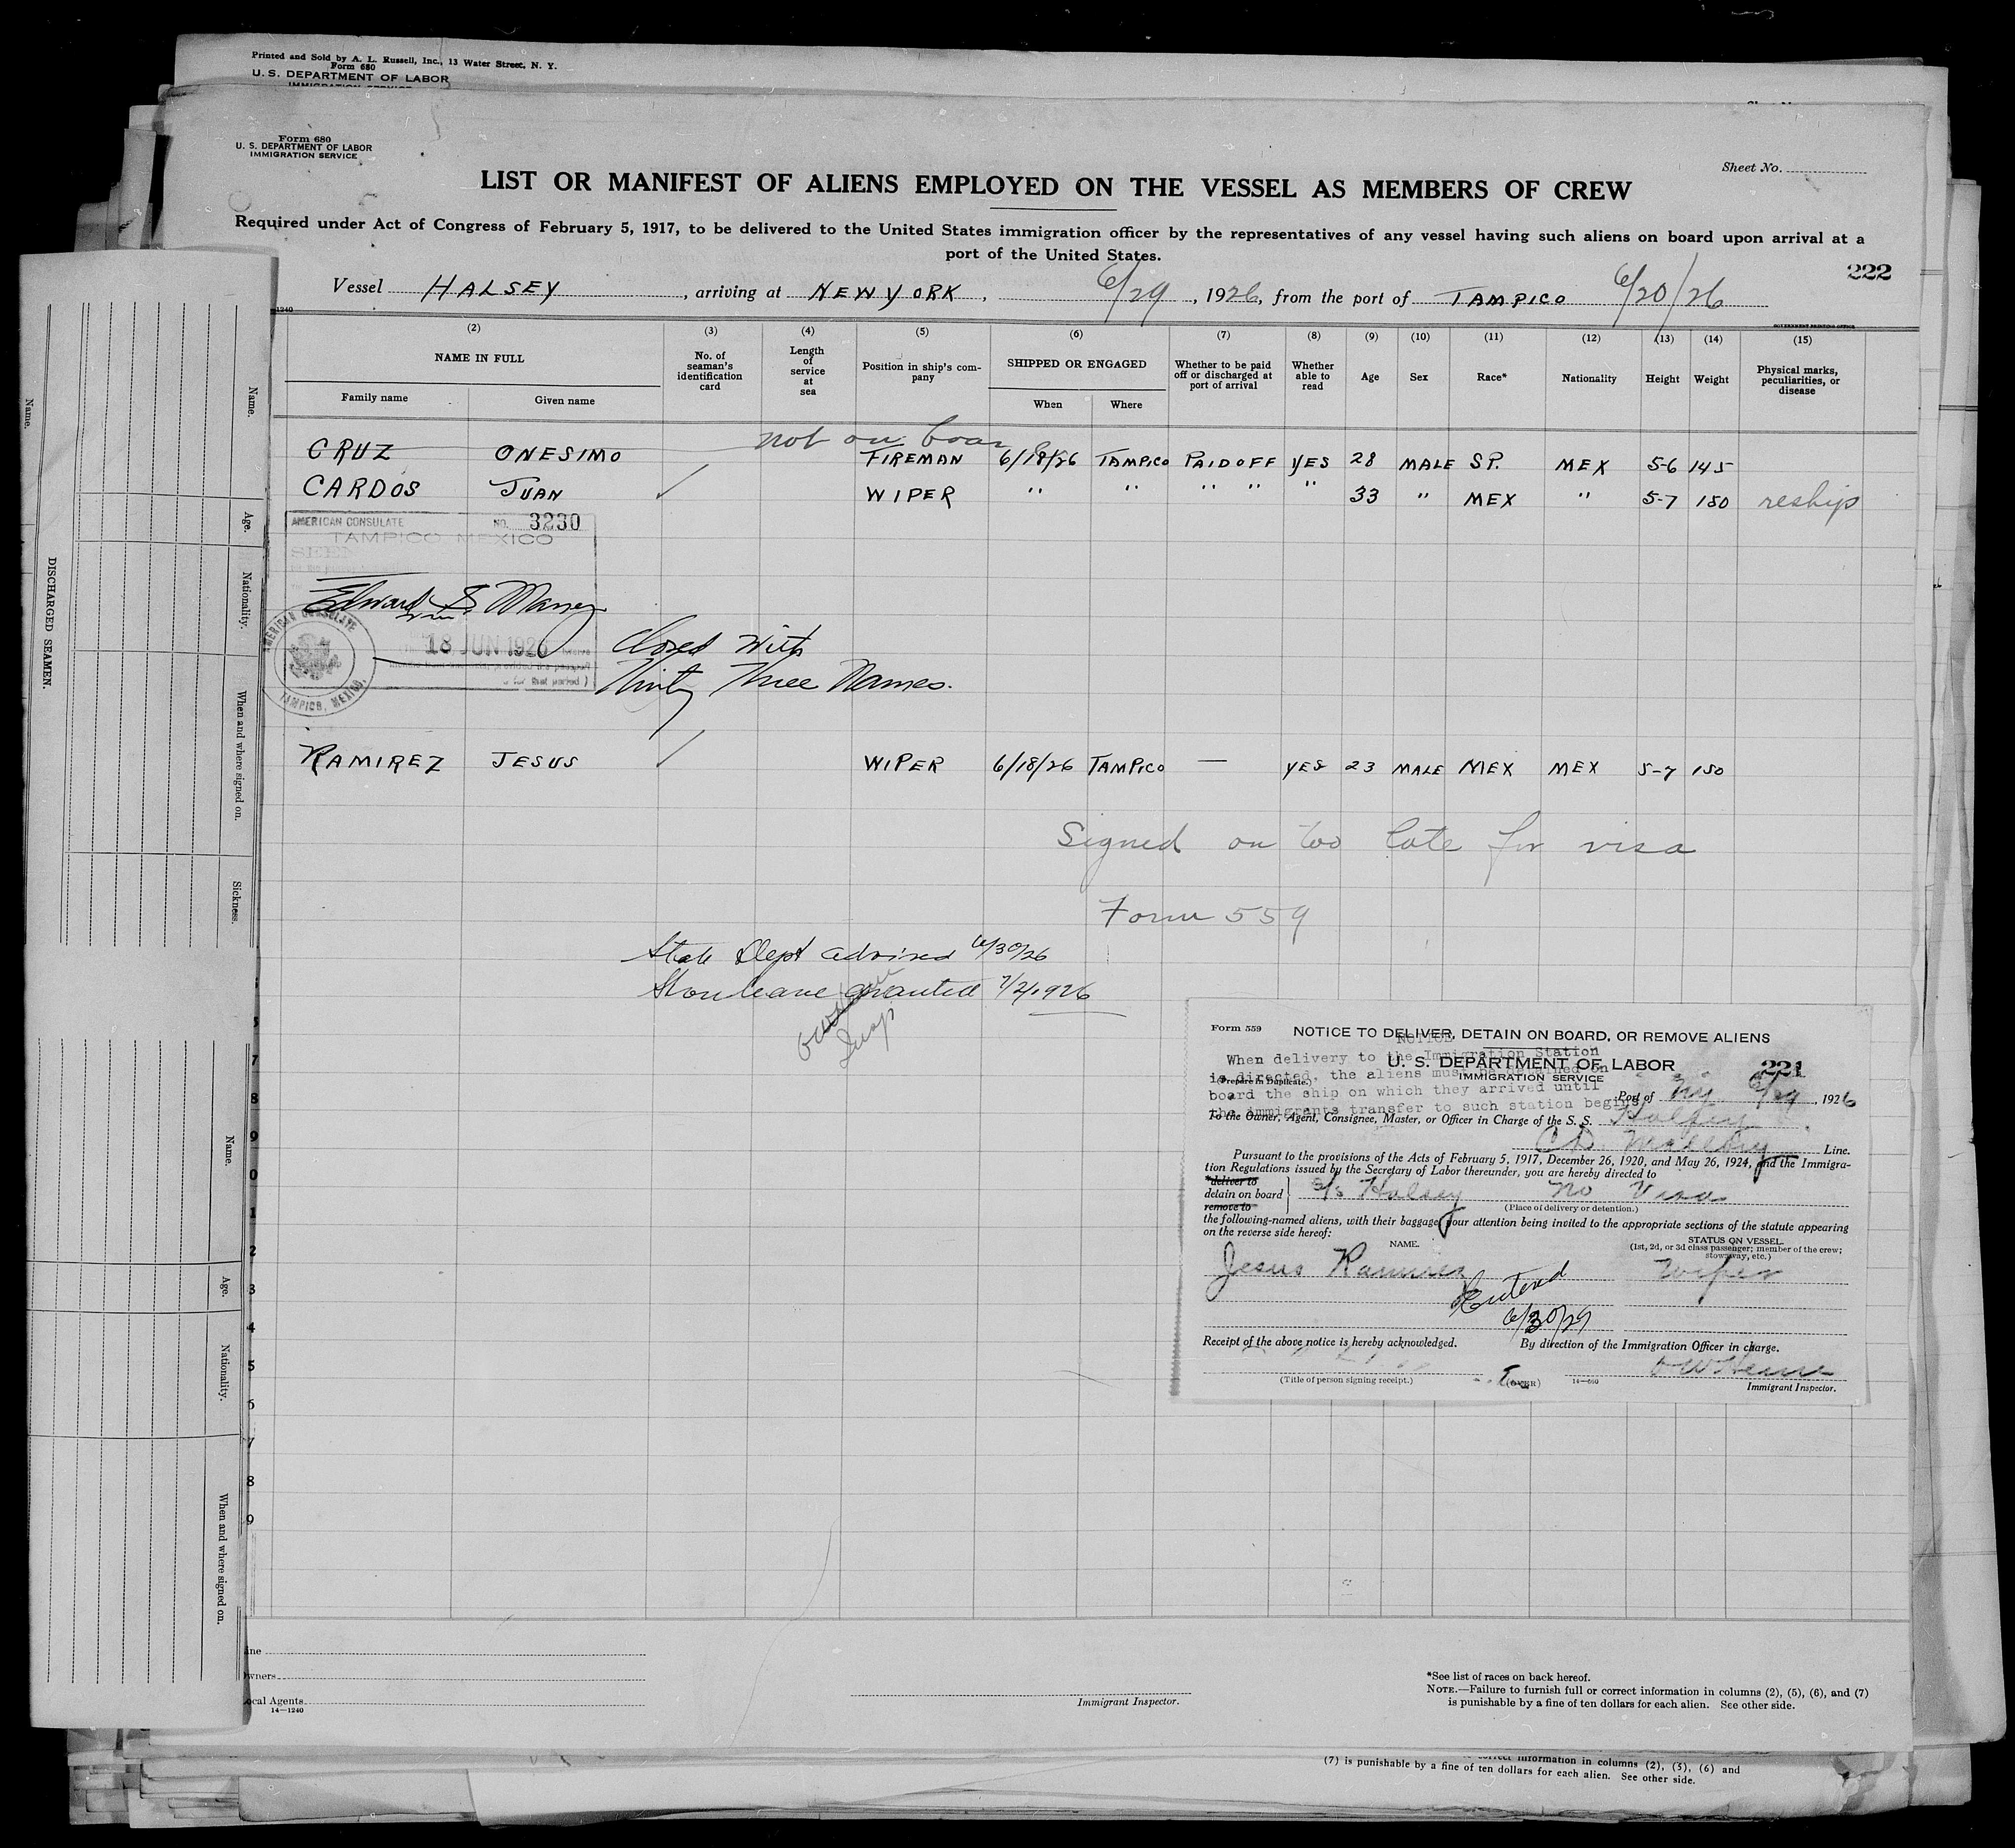 Printed and Sold by A. L. Russell, Inc., 13 Water Street, N. Y.
Form 680
U. S. DEPARTMENT OF LABOR
IMMIGRATION SERVICE
Form 680
U. S. DEPARTMENT OF LABOR
IMMIGRATION SERVICE
Sheet No.
LIST OR MANIFEST OF ALIENS EMPLOYED ON THE VESSEL AS MEMBERS OF CREW
Required under Act of Congress of February 5, 1917, to be delivered to the United States immigration officer by the representatives of any vessel having such aliens on board upon arrival at a
port of the United States.
222
Vessel HALSEY, arriving at NEW YORK, 6/29, 1926, from the port of TAMPICO 6/20/26
1240
GOVERNMENT PRINTING OFFICE
(2) (3) (4) (5) (6) (7) (8) (9) (10) (11) (12) (13) (14) (15)
NAME IN FULL
Family name
Given name
No. of seaman's identification card
Length of service at sea
Position in ship's company
SHIPPED OR ENGAGED
When
Where
Whether to be paid off or discharged at port of arrival
Whether able to read
Age
Sex
Race*
Nationality
Height
Weight
Physical marks, peculiarities, or disease
not on boar
CRUZ ONESIMO FIREMAN 6/18/26 TAMPICO PAID OFF YES 28 MALE SP. MEX 5-6 145
CARDOS JUAN WIPER " " " " " 33 " MEX " 5-7 150 reship
AMERICAN CONSULATE NO. 3230
TAMPICO MEXICO
SEEN
Edward S. Maney
18 JUN 1926
for that period )
AMERICAN CONSULATE
TAMPICO, MEXICO.
Closed with
Thirty Three Names.
RAMIREZ JESUS WIPER 6/18/26 TAMPICO — YES 23 MALE MEX MEX 5-7 150
Signed on too late for visa
Form 559
State Dept advised 6/30/26
Shore leave granted 7/2/1926
Insp
Form 559
NOTICE TO DELIVER, DETAIN ON BOARD, OR REMOVE ALIENS
NOTICE
When delivery to the Immigration Station
U. S. DEPARTMENT OF LABOR
221
is directed, the aliens must be detained on
(Prepare in Duplicate.)
IMMIGRATION SERVICE
board the ship on which they arrived until
Port of N.Y. 6/29, 1926
the immigrants transfer to such station begins.
To the Owner, Agent, Consignee, Master, or Officer in Charge of the S. S. Halsey
C D Mallory Line.
Pursuant to the provisions of the Acts of February 5, 1917, December 26, 1920, and May 26, 1924, and the Immigra-
tion Regulations issued by the Secretary of Labor thereunder, you are hereby directed to
*deliver to
detain on board
remove to
S/S Halsey No Visa
(Place of delivery or detention.)
the following-named aliens, with their baggage, your attention being invited to the appropriate sections of the statute appearing
on the reverse side hereof:
NAME.
STATUS ON VESSEL.
(1st, 2d, or 3d class passenger; member of the crew;
stowaway, etc.)
Jesus Ramirez Wiper
6/30/29
Receipt of the above notice is hereby acknowledged.
By direction of the Immigration Officer in charge.
(Title of person signing receipt.)
(OVER)
14—560
Immigrant Inspector.
Name.
Age.
Nationality.
When and where signed on.
Sickness.
DISCHARGED SEAMEN.
Name.
Name.
Age.
Nationality.
When and where signed on.
7
8
9
0
1
2
3
4
5
6
7
8
9
ine
wners
ocal Agents
14—1240
Immigrant Inspector.
*See list of races on back hereof.
NOTE.—Failure to furnish full or correct information in columns (2), (5), (6), and (7)
is punishable by a fine of ten dollars for each alien. See other side.
correct information in columns (2), (5), (6) and
(7) is punishable by a fine of ten dollars for each alien. See other side.